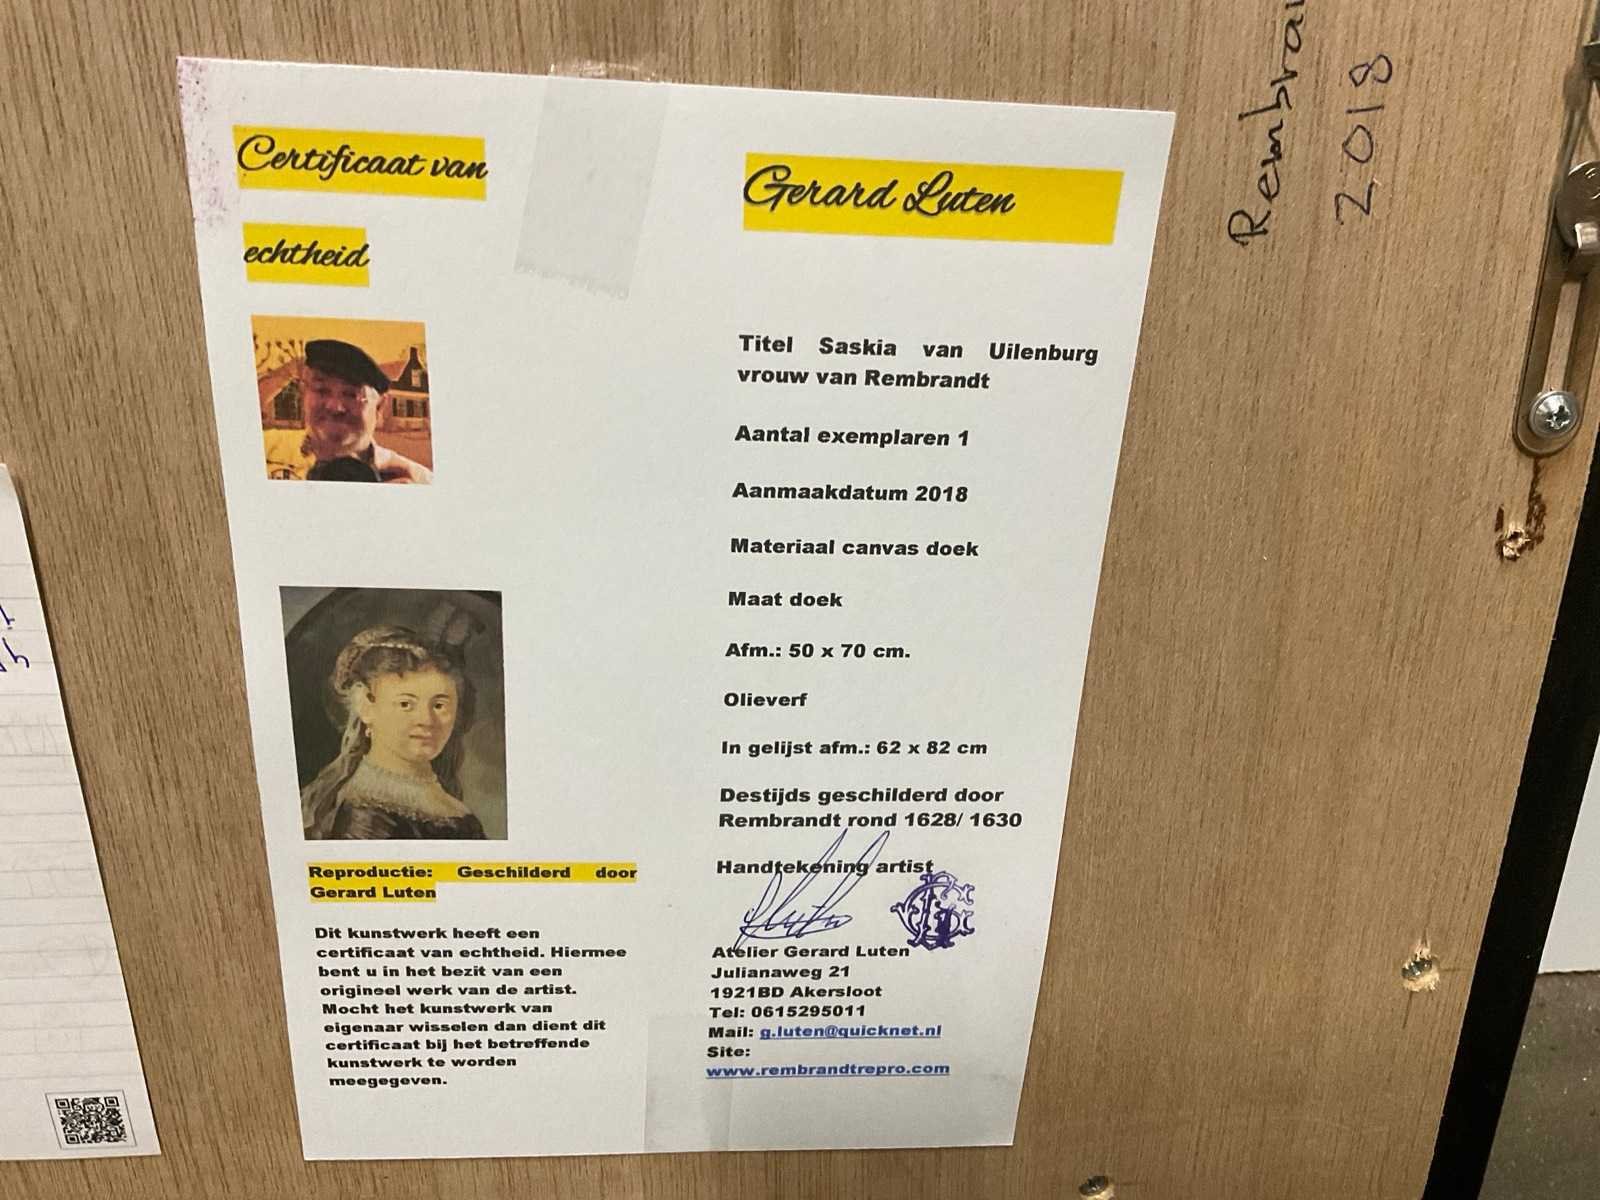 Certificaat van
echtheid
Reproductie: Geschilderd door
Gerard Luten
Dit kunstwerk heeft een
certificaat van echtheid. Hiermee
bent u in het bezit van een
origineel werk van de artist.
Mocht het kunstwerk van
eigenaar wisselen dan dient dit
certificaat bij het betreffende
kunstwerk te worden
meegegeven.
Gerard Luten
Titel Saskia van Uilenburg
vrouw van Rembrandt
Aantal exemplaren 1
Aanmaakdatum 2018
Materiaal canvas doek
Maat doek
Afm.: 50 x 70 cm.
Olieverf
In gelijst afm.: 62 x 82 cm
Destijds geschilderd door
Rembrandt rond 1628/ 1630
Handtekening artist
Atelier Gerard Luten
Julianaweg 21
1921BD Akersloot
Tel: 0615295011
Mail: g.luten@quicknet.nl
Site:
www.rembrandtrepro.com
Rembra
2018